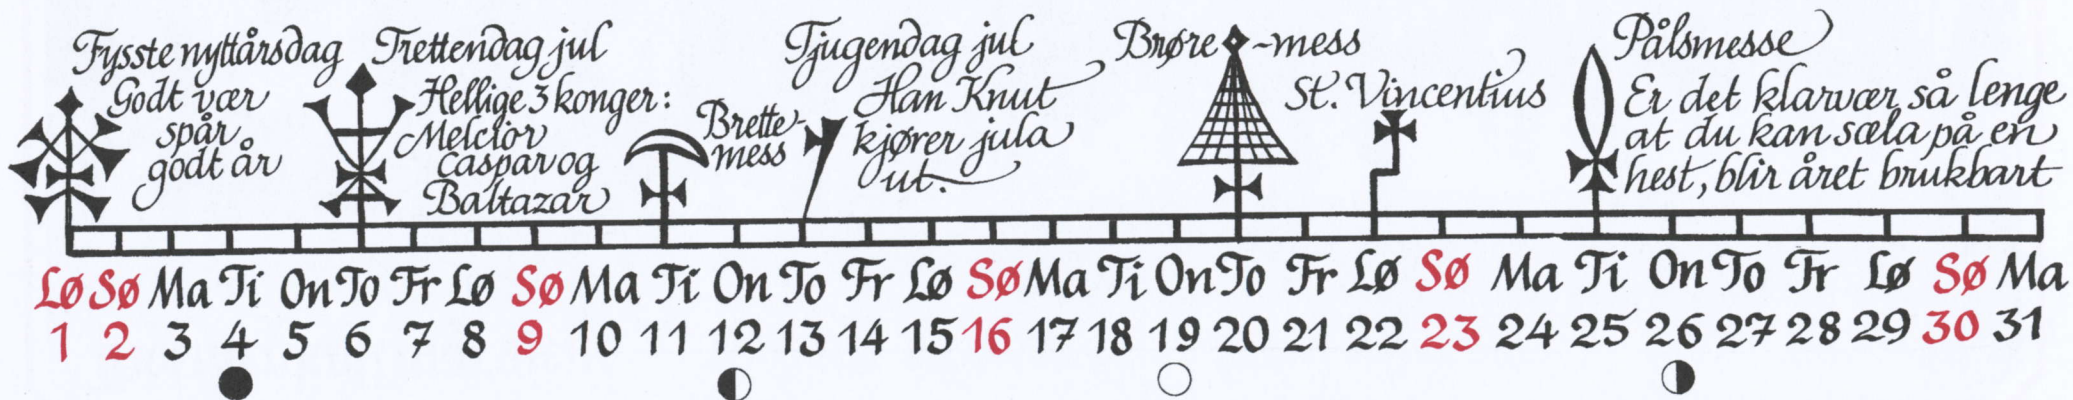 Fysste nyttårsdag
Godt vær
spår
godt år
Trettendag jul
Hellige 3 konger:
Melcior
Caspar og
Baltazar
Brette-
mess
Tjugendag jul
Han Knut
kjører jula
ut.
Brøre-mess
St. Vincentius
Pålsmesse
Er det klarvær så lenge
at du kan sæla på en
hest, blir året brukbart
Lø Sø Ma Ti On To Fr Lø Sø Ma Ti On To Fr Lø Sø Ma Ti On To Fr Lø Sø Ma Ti On To Fr Lø Sø Ma
1 2 3 4 5 6 7 8 9 10 11 12 13 14 15 16 17 18 19 20 21 22 23 24 25 26 27 28 29 30 31